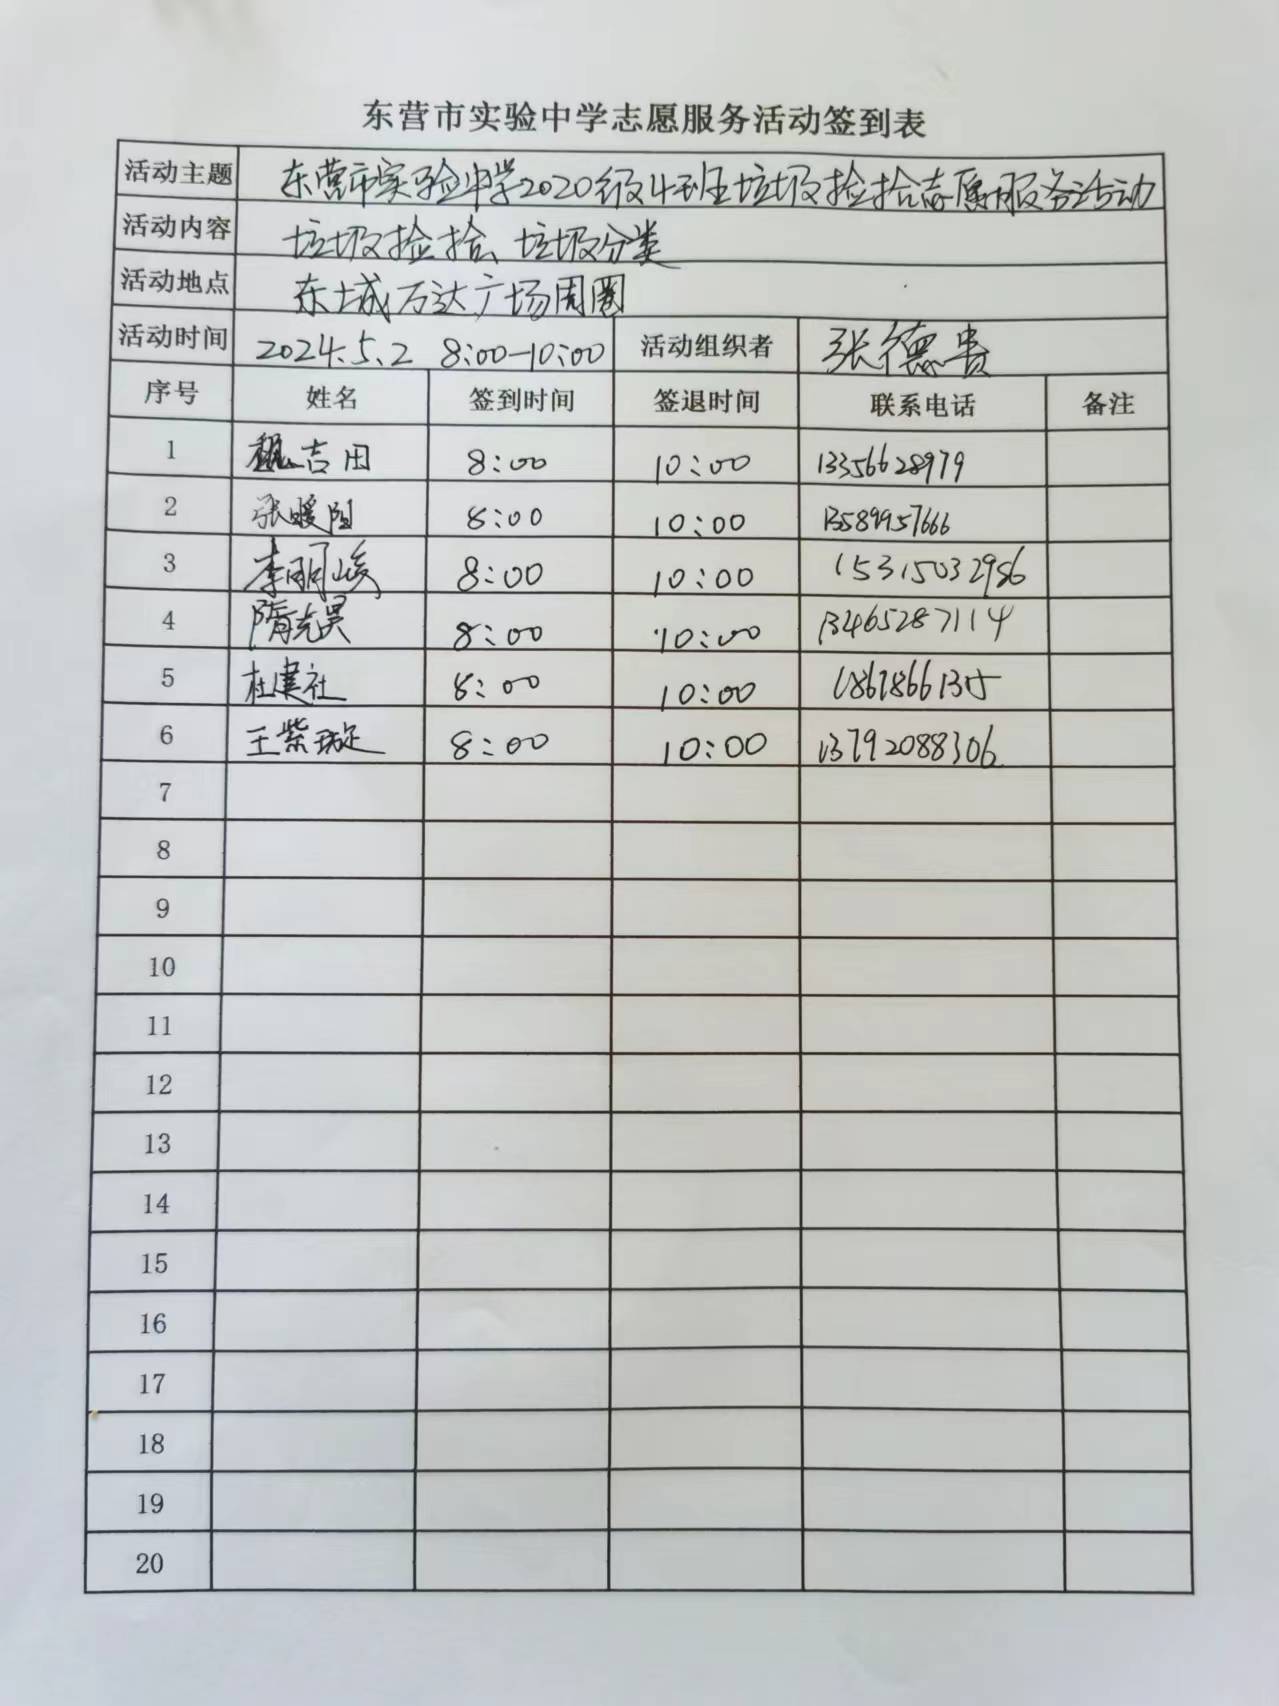 东营市实验中学志愿服务活动签到表
活动主题 东营市实验中学2020级4班垃圾捡拾志愿服务活动
活动内容 垃圾捡拾、垃圾分类
活动地点 东城万达广场周围
活动时间 2024.5.2 8:00-10:00 活动组织者 张德贵
序号 姓名 签到时间 签退时间 联系电话 备注
1 魏吉田 8:00 10:00 13356628979
2 张暖阳 8:00 10:00 13589957666
3 李明峻 8:00 10:00 15315032986
4 隋克昊 8:00 10:00 13465287114
5 杜建社 8:00 10:00
6 王紫琁 8:00 10:00 13792088306
7
8
9
10
11
12
13
14
15
16
17
18
19
20